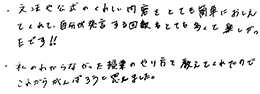 ・文法や公式のくわしい内容をとても簡単におしえ
てくれて、自分が発言する回数もとても多くて楽しかっ
たです!!
・私のわからなかった授業のやり方を教えてくれたので
これからがんばろうと思えました。